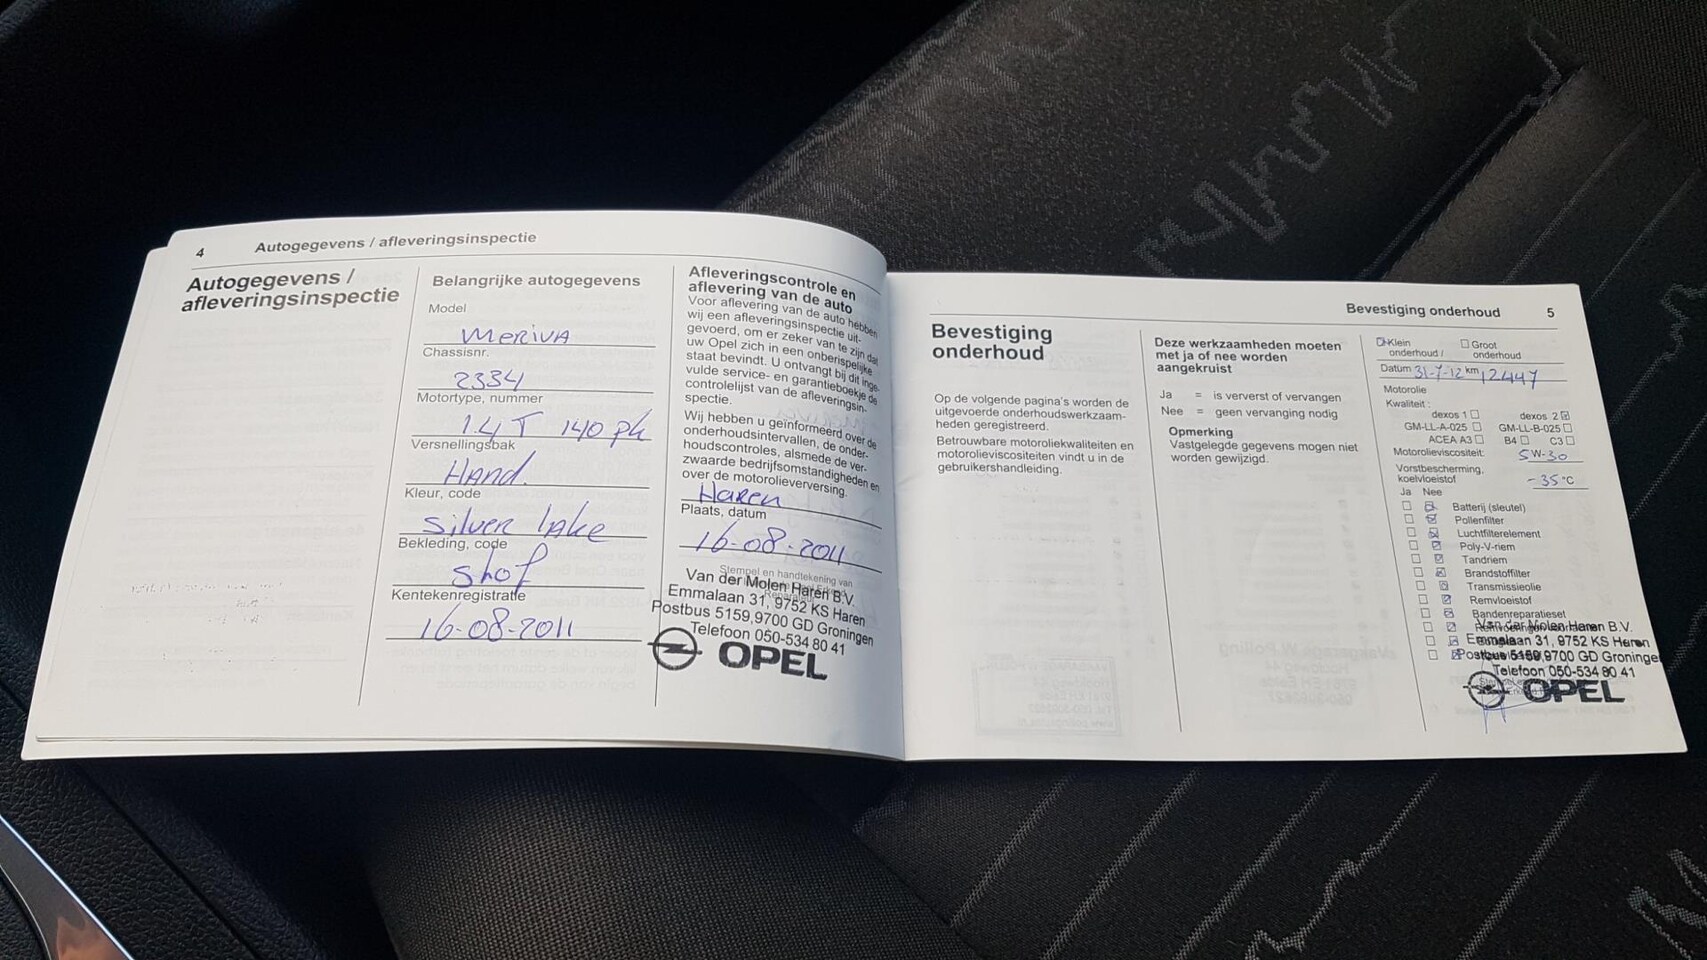 4
Autogegevens / afleveringsinspectie
Autogegevens /
afleveringsinspectie
Belangrijke autogegevens
Model
Meriva
Chassisnr.
2334
Motortype, nummer
1.4 T 140 pk
Versnellingsbak
Hand.
Kleur, code
Silver lake
Bekleding, code
Stof
Kentekenregistratie
16-08-2011
Afleveringscontrole en
aflevering van de auto
Voor aflevering van de auto hebben
wij een afleveringsinspectie uit-
gevoerd, om er zeker van te zijn dat
uw Opel zich in een onberispelijke
staat bevindt. U ontvangt bij dit inge-
vulde service- en garantieboekje de
controlelijst van de afleveringsin-
spectie.
Wij hebben u geïnformeerd over de
onderhoudsintervallen, de onder-
houdscontroles, alsmede de ver-
zwaarde bedrijfsomstandigheden en
over de motorolieverversing.
Haren
Plaats, datum
16-08-2011
Stempel en handtekening van
Van der Molen Haren B.V.
Emmalaan 31, 9752 KS Haren
Postbus 5159,9700 GD Groningen
Telefoon 050-534 80 41
OPEL
Bevestiging onderhoud
5
Bevestiging
onderhoud
Op de volgende pagina's worden de
uitgevoerde onderhoudswerkzaam-
heden geregistreerd.
Betrouwbare motoroliekwaliteiten en
motorolieviscositeiten vindt u in de
gebruikershandleiding.
Deze werkzaamheden moeten
met ja of nee worden
aangekruist
Ja = is ververst of vervangen
Nee = geen vervanging nodig
Opmerking
Vastgelegde gegevens mogen niet
worden gewijzigd.
Klein onderhoud / Groot onderhoud
Datum 31-7-12 km 12447
Motorolie
Kwaliteit :
dexos 1 dexos 2
GM-LL-A-025 GM-LL-B-025
ACEA A3 B4 C3
Motorolieviscositeit: 5W-30
Vorstbescherming,
koelvloeistof -35 °C
Ja Nee
Batterij (sleutel)
Pollenfilter
Luchtfilterelement
Poly-V-riem
Tandriem
Brandstoffilter
Transmissieolie
Remvloeistof
Bandenreparatieset
Van der Molen Haren B.V.
Emmalaan 31, 9752 KS Haren
Postbus 5159,9700 GD Groningen
Telefoon 050-534 80 41
OPEL